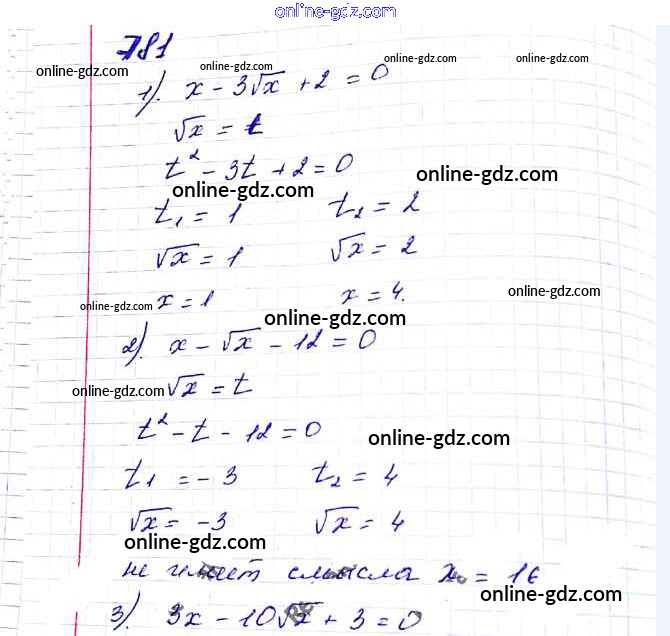 online-gdz.com
781
online-gdz.com online-gdz.com online-gdz.com online-gdz.com
1). x - 3√x + 2 = 0
√x = t
t² - 3t + 2 = 0
online-gdz.com online-gdz.com
t₁ = 1 t₂ = 2
√x = 1 √x = 2
online-gdz.com x = 1 x = 4. online-gdz.com
online-gdz.com
2). x - √x - 12 = 0
online-gdz.com √x = t
t² - t - 12 = 0
online-gdz.com
t₁ = -3 t₂ = 4
√x = -3 √x = 4
online-gdz.com
не имеет смысла x = 16
online-gdz.com
3). 3x - 10√x + 3 = 0